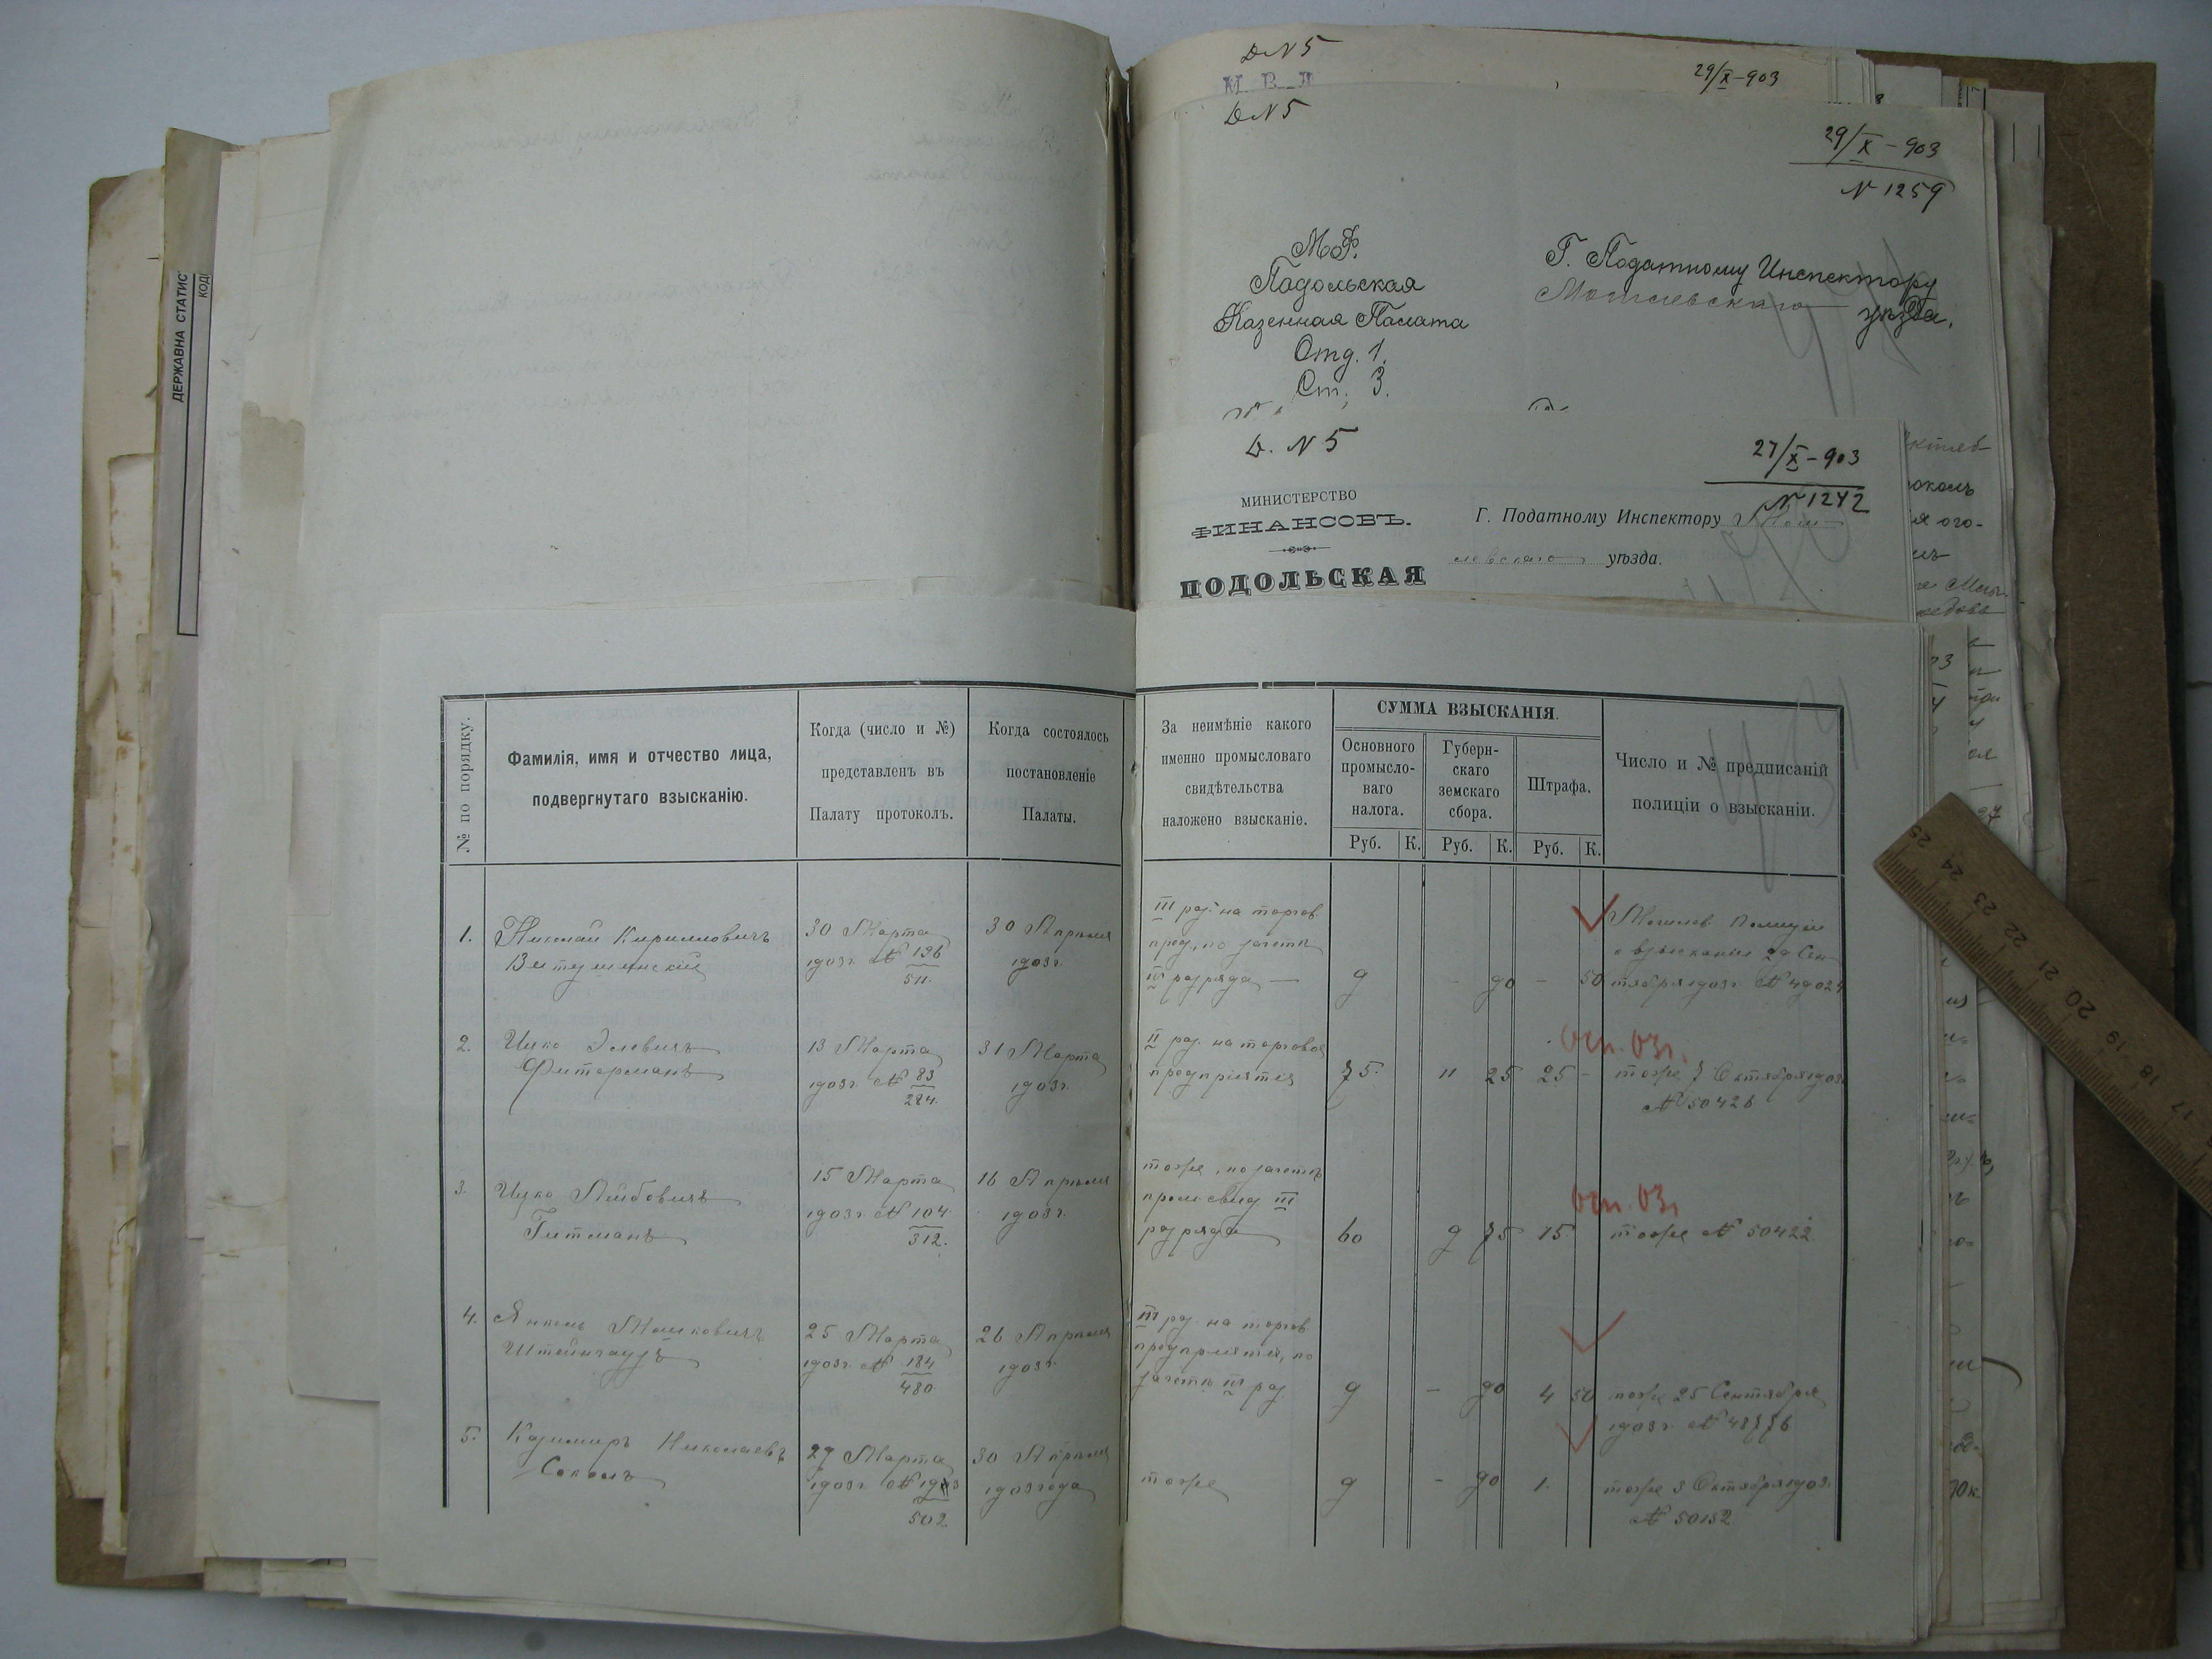 ДЕРЖАВНА СТАТИС
КОД
DN5
М. В. Д
29/X-903
DN5
29/X-903
N 1259
М.Ф.
Подольская
Казенная Палата
Отд. 1.
Ст. 3.
Г. Податному Инспектору
Могилевскаго уѣзда.
D. N 5
27/X-903
N 1242
МИНИСТЕРСТВО
ФИНАНСОВЪ.
ПОДОЛЬСКАЯ
Г. Податному Инспектору Моги-
левскаго уѣзда.
№ по порядку.
Фамилія, имя и отчество лица,
подвергнутаго взысканію.
Когда (число и №)
представленъ въ
Палату протоколъ.
Когда состоялось
постановленіе
Палаты.
За неимѣніе какого
именно промысловаго
свидѣтельства
наложено взысканіе.
СУММА ВЗЫСКАНІЯ.
Основного
промысло-
ваго
налога.
Губерн-
скаго
земскаго
сбора.
Штрафа.
Руб. К. Руб. К. Руб. К.
Число и № предписаній
полиціи о взысканіи.
1. Николай Кирилловичъ
30 Марта
1903г. № 136
511.
30 Апрѣля
1903г.
III раз. на торгов.
пред., по зачетѣ
IV разряда —
9 - 90 - 50
Могилев. Полиціи
о взысканіи 29 Сен-
тября 1903г. № 49024
2. Ицко Элевичъ
Фитерманъ
13 Марта
1903г. № 83
284.
31 Марта
1903г.
II раз. на торговое
предпріятіе
75. 11 25 25 -
оги. 03г.
тоже 7 Октября 1903
№ 50426
3. Ицко Лейбовичъ
Гитманъ
15 Марта
1903г. № 104
312.
16 Апрѣля
1903г.
тоже, по зачетѣ
пром. свид. III
разряда
60 9 75 15.
03г.
тоже № 50422
4. Янкель Мошковичъ
Штейнгаузъ
25 Марта
1903г. № 184
480
26 Апрѣля
1903г.
III раз. на торгов.
предпріятія, по
зачетѣ IV раз.
9 - 90 4 50
тоже 25 Сентября
1903г. № 48776
5. Казимиръ Николаевъ
Соколъ
27 Марта
1903г. №
502
30 Апрѣля
1903 года
тоже
9 - 90 1.
тоже 3 Октября 1903.
№ 50152
25 24 23 22 21 20 19 18 17